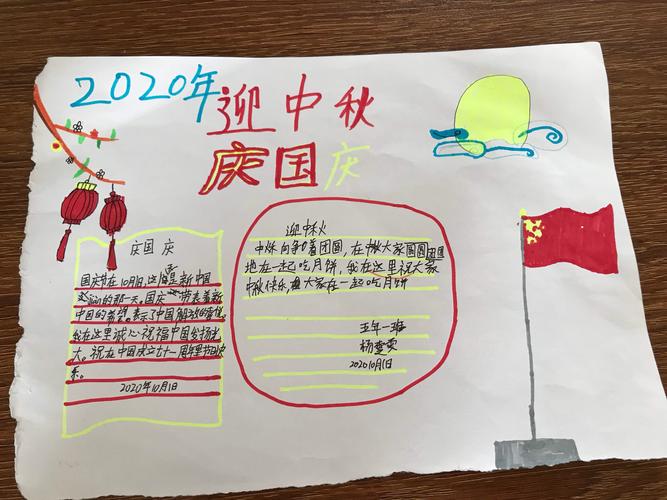 2020年
迎中秋
庆国庆
庆国庆
国庆节在10月1日这届是新中国
的那一天。国庆 带表着新
中国的希望。表示了中国解放的喜悦
我在这里诚心祝福中国发扬光
大。祝在中国成立七十一周年里节日快
乐。
2020年10月1日
迎中秋
中秋向争着团圆，在中秋大家团圆团圆
地在一起吃月饼，我在这里祝大家
中秋快乐，大家在一起吃月饼
五年一班
杨
2020 10月1日